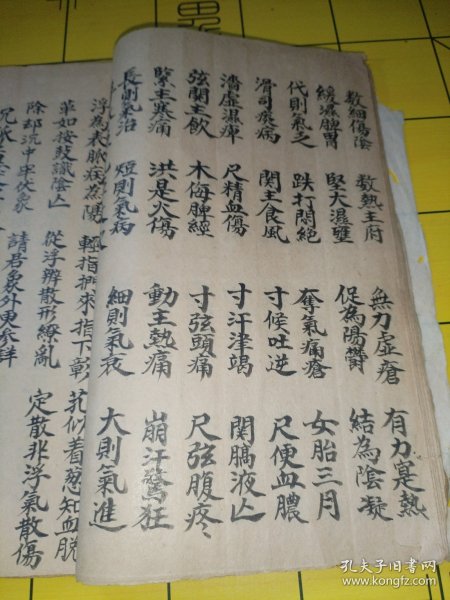 數細傷陰 數熱主府 無力虛瘡 有力寔熱
緩濕脾胃 堅大濕壅 促為陽欝 結為陰凝
代則氣乏 跌打悶絕 奪氣痛瘡 女胎三月
滑司痰病 関主食風 寸候吐逆 尺便血膿
濇虛濕痺 尺精血傷 寸汗津竭 関膈液亾
弦関主飲 木侮脾經 寸弦頭痛 尺弦腹疼
緊主寒痛 洪是火傷 動主熱痛 崩汗驚狂
長則氣治 短則氣病 細則氣衰 大則氣進
浮為表脈病為陽 輕指捫求指下彰 芤似着葱知血脫
革如按鼓識陰亾 從浮辨散形繚亂 定散非浮氣散傷
除却沉中牢伏象 請君象外更参詳
孔夫子旧书网
www.kongfz.com